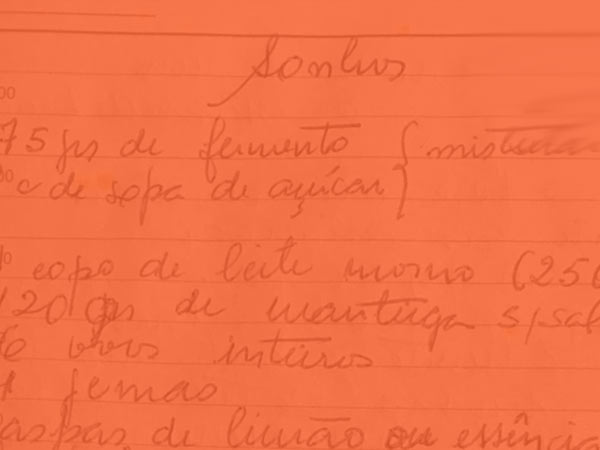 Sonhos
75 grs de fermento { misturar
c de sopa de açúcar }
copo de leite morno (250
120 grs de manteiga s/sal
6 ovos inteiros
gemas
raspas de limão ou essência